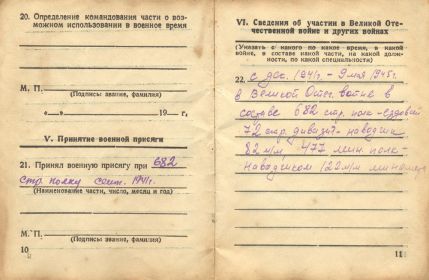 20. Определение командования части о воз-
можном использовании в военное время
М. П.
(Подпись: звание, фамилия)
«—» 19— г.
V. Принятие военной присяги
21. Принял военную присягу при 682
стр. полку сент. 1941г.
(Наименование части, число, месяц и год)
М. П.
(Подпись: звание, фамилия)
10
VI. Сведения об участии в Великой Оте-
чественной войне и других войнах
(Указать с какого по какое время, в какой
войне, в составе какой части, на какой долж-
ности, по какой специальности)
22. с дек. 1941г. - 9 мая 1945г.
в Великой Отеч. войне в
составе 682 стр. полк - ездовой
72 стр. дивизия - наводчик
82 м/м, 477 мин. полк -
наводчиком 122 м/м миномета
11